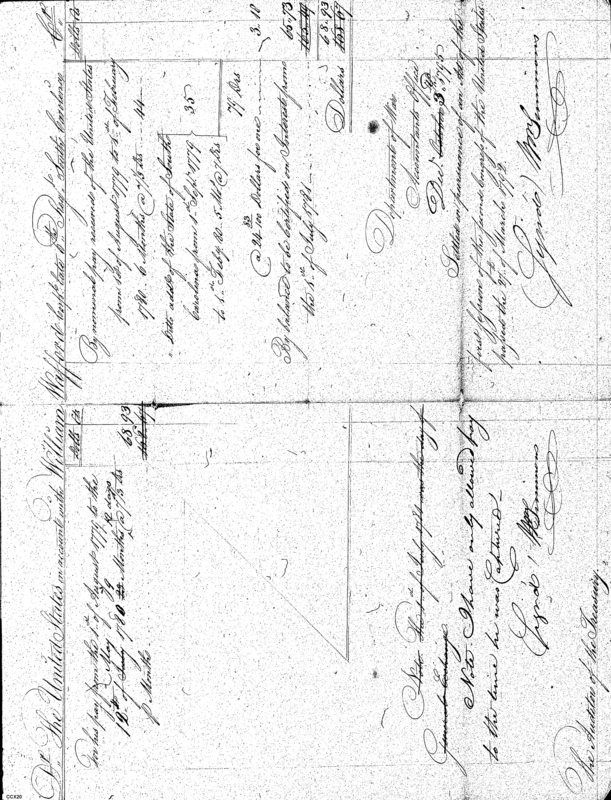 Dr. The United States in account with William Wafford Capt. late 5th Regt. South Carolina Cr.
Dolls Cts
For his pay from the 1st of August 1779 to the
12th May
12th of July 1780 9 Months 12 days @ 7 1/3 Drs
p Month 68.93
Dolls Cts
By nominal pay records of the United States
from 1st of August 1779 to 1st of February
1780. 6 Months @ 7 1/3 Drs 44
Ditto allo of the State of South
Carolina from 1st Sept. 1779
to 1st Feby 80. 5 Ms @ 7 Drs 35
79 Drs
@ 24 83/100 Dollars for one 3.18
By balance to be certified on Interest from
the 1st of July 1781 65.73
Dollars 68.93
Note. I have only allowed pay
to the time he was Captured
Sign'd Wm Simmons
Department of War
Accountants Office
Decr 1795
Settled in pursuance of an act of the
first Session of the second Congress of the United States
passed the 27th March 1792.
Sign'd Wm Simmons
The Auditor of the Treasury.
CCX20